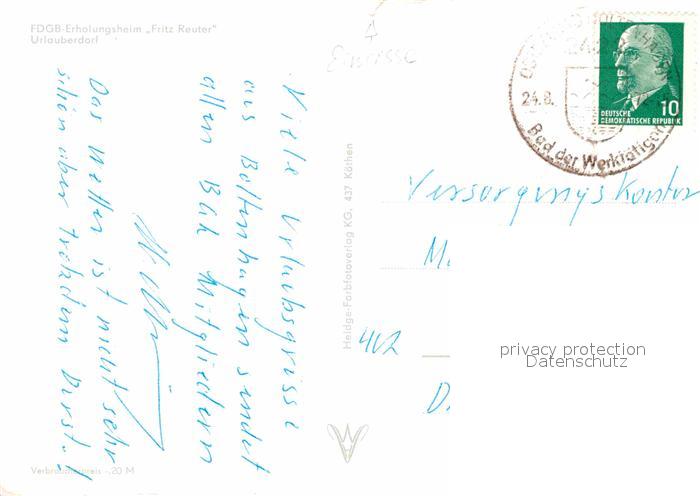 FDGB-Erholungsheim „Fritz Reuter"
Urlauberdorf
Einrisse
Viele Urlaubsgrüsse
aus Boltenhagen sendet
allen Bük Mitgliedern
Das Wetter ist nicht sehr
schön aber trotzdem Durst.!
Verbraucherpreis -.20 M
Heldge-Farbfotoverlag KG, 437 Köthen
24.8.
Bad der Werktätigen
DEUTSCHE
DEMOKRATISCHE REPUBLIK
10
Versorgungskontor
M.
402
D.
privacy protection
Datenschutz